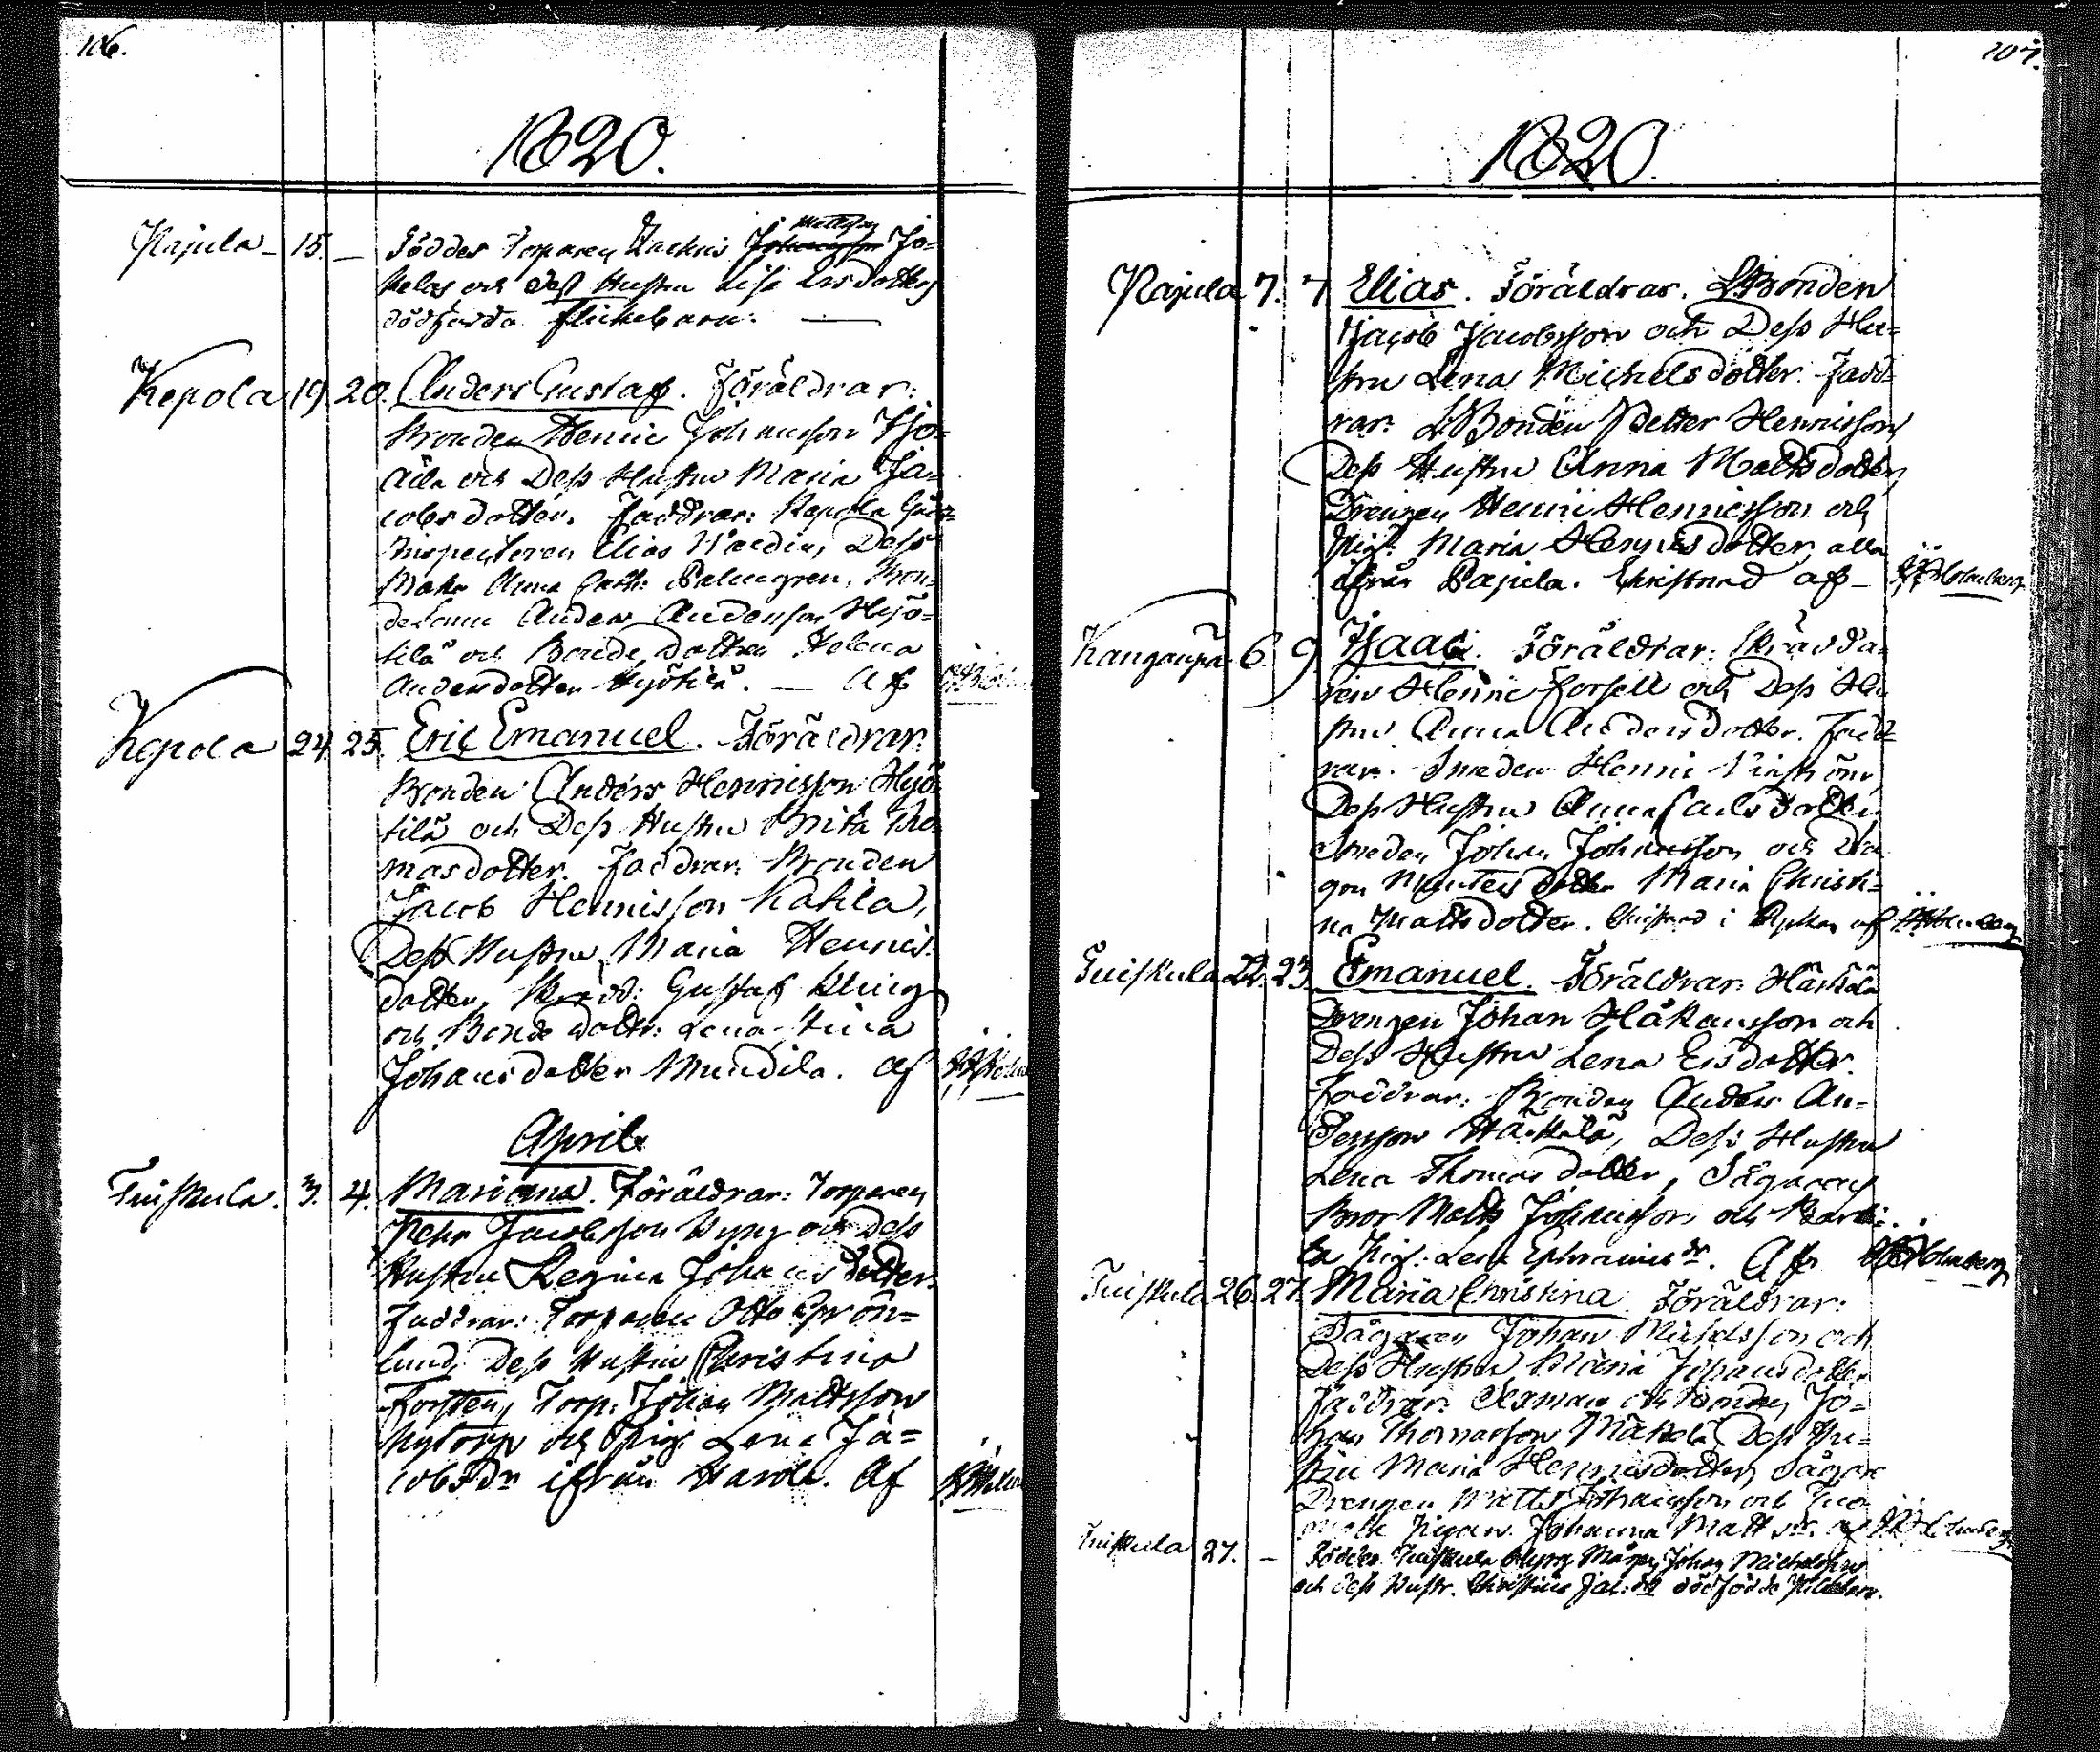 106.
1820.
Pajula - 15. - Föddes Torparen Zachris Mattsson Jo=
kelas och Dess Hustru Lisa Ersdotters
dödfödda flickebarn.
Kepola 19. 20. Anders Gustaf. Föräldrar:
Bonden Henric Johansson
och Dess Hustru Maria Ja-
cobsdotter. Faddrar: Kepola
Inspectoren Elias Dess
Maka Anna Cath: Palmgren, Bon-
desonen Anders Andersson Hyö-
tilä och Bonde Dottren Helena
Andersdotter Hyötilä. - Af
Kepola 24. 25. Eric Emanuel. Föräldrar:
Bonden Anders Henricsson Hyö-
tilä och Dess Hustru Brita Tho-
masdotter. Faddrar: Bonden
Jacob Henricsson Kakila,
Dess Hustru Maria Henrics-
dotter, Skrädd: Gustaf Kling
och Bonde Dottr: Lena Stina
Johansdotter Mundila. Af
April
Tuiskula. 3. 4. Mariana. Föräldrar: Torparen
Pehr Jacobsson och Dess
Hustru Regina Johansdotter.
Faddrar: Torparen Otto Grön=
lund, Dess Hustru Christina
Forsten, Torp: Johan Mattsson
Nytorp och Pig: Lena Ja=
cobsdr ifrån Harola. Af
107.
1820.
Pajula 7. 7. Elias. Föräldrar. LBonden
Jacob Jacobsson och Dess Hu=
stru Lena Michelsdotter. Fadd=
rar: LBonden Petter Henricsson
Dess Hustru Anna Mattsdotter,
Drengen Henric Henricsson och
Pig: Maria Henricsdotter alla
ifrån Pajula. Christnad af - Holmberg
Kanganpä 6. 9. Isaac. Föräldrar: Skrädda-
ren Henric Forsell och Dess Hu-
stru Anna Andersdotter. Fadd=
rar. Smeden Henric
Dess Hustru Anna Carlsdotter
Smeden Johan Johansson och Dra
gon Dotter Maria Christi=
na Mattsdotter. Christnad i Kyrkan af Holmberg
Tuiskula 22. 23. Emanuel. Föräldrar: Härkälä
Drengen Johan Håkansson och
Dess Hustru Lena Ersdotter.
Faddrar: Bonden Anders An=
dersson Härkälä, Dess Hustru
Lena Thomasdotter, Sågaren
Bror Matts Johansson och
Pig: Lena Ephraimsdr. Af Holmberg
Tuiskula 26. 27. Maria Christina. Föräldrar:
Sågaren Johan Michelsson och
Dess Hustru Maria Johansdotter
Faddrar: Sexman och Bonden Jo=
han Thomasson Mäkelä, Dess Hu=
stru Maria Henricsdotter, Sågare
Drengen Matts Johansson och
Pigan Johanna Mattsdr. af Holmberg
Tuiskula 27. - Föddes Tuiskula Johan Michelsson
och dess Hustr. Christina Jac: dr dödfödde